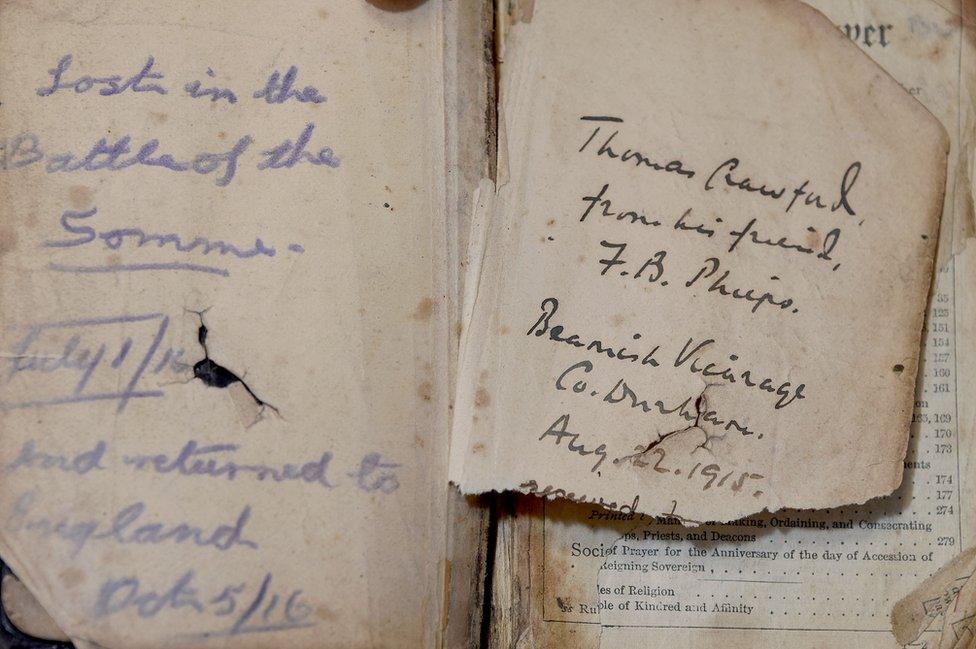 Lost in the
Battle of the
Somme -
July 1/16
And returned to
England
Oct 5/16
Thomas Crawford,
from his friend,
F.B. Phipps.
Beamish Vicarage
Co. Durham.
Aug. 22. 1915.
35
125
151
154
157
160
161
165, 169
170
173
174
177
274
Making, Ordaining, and Consecrating
Priests, and Deacons 279
of Prayer for the Anniversary of the day of Accession of
Reigning Sovereign
of Religion
of Kindred and Affinity